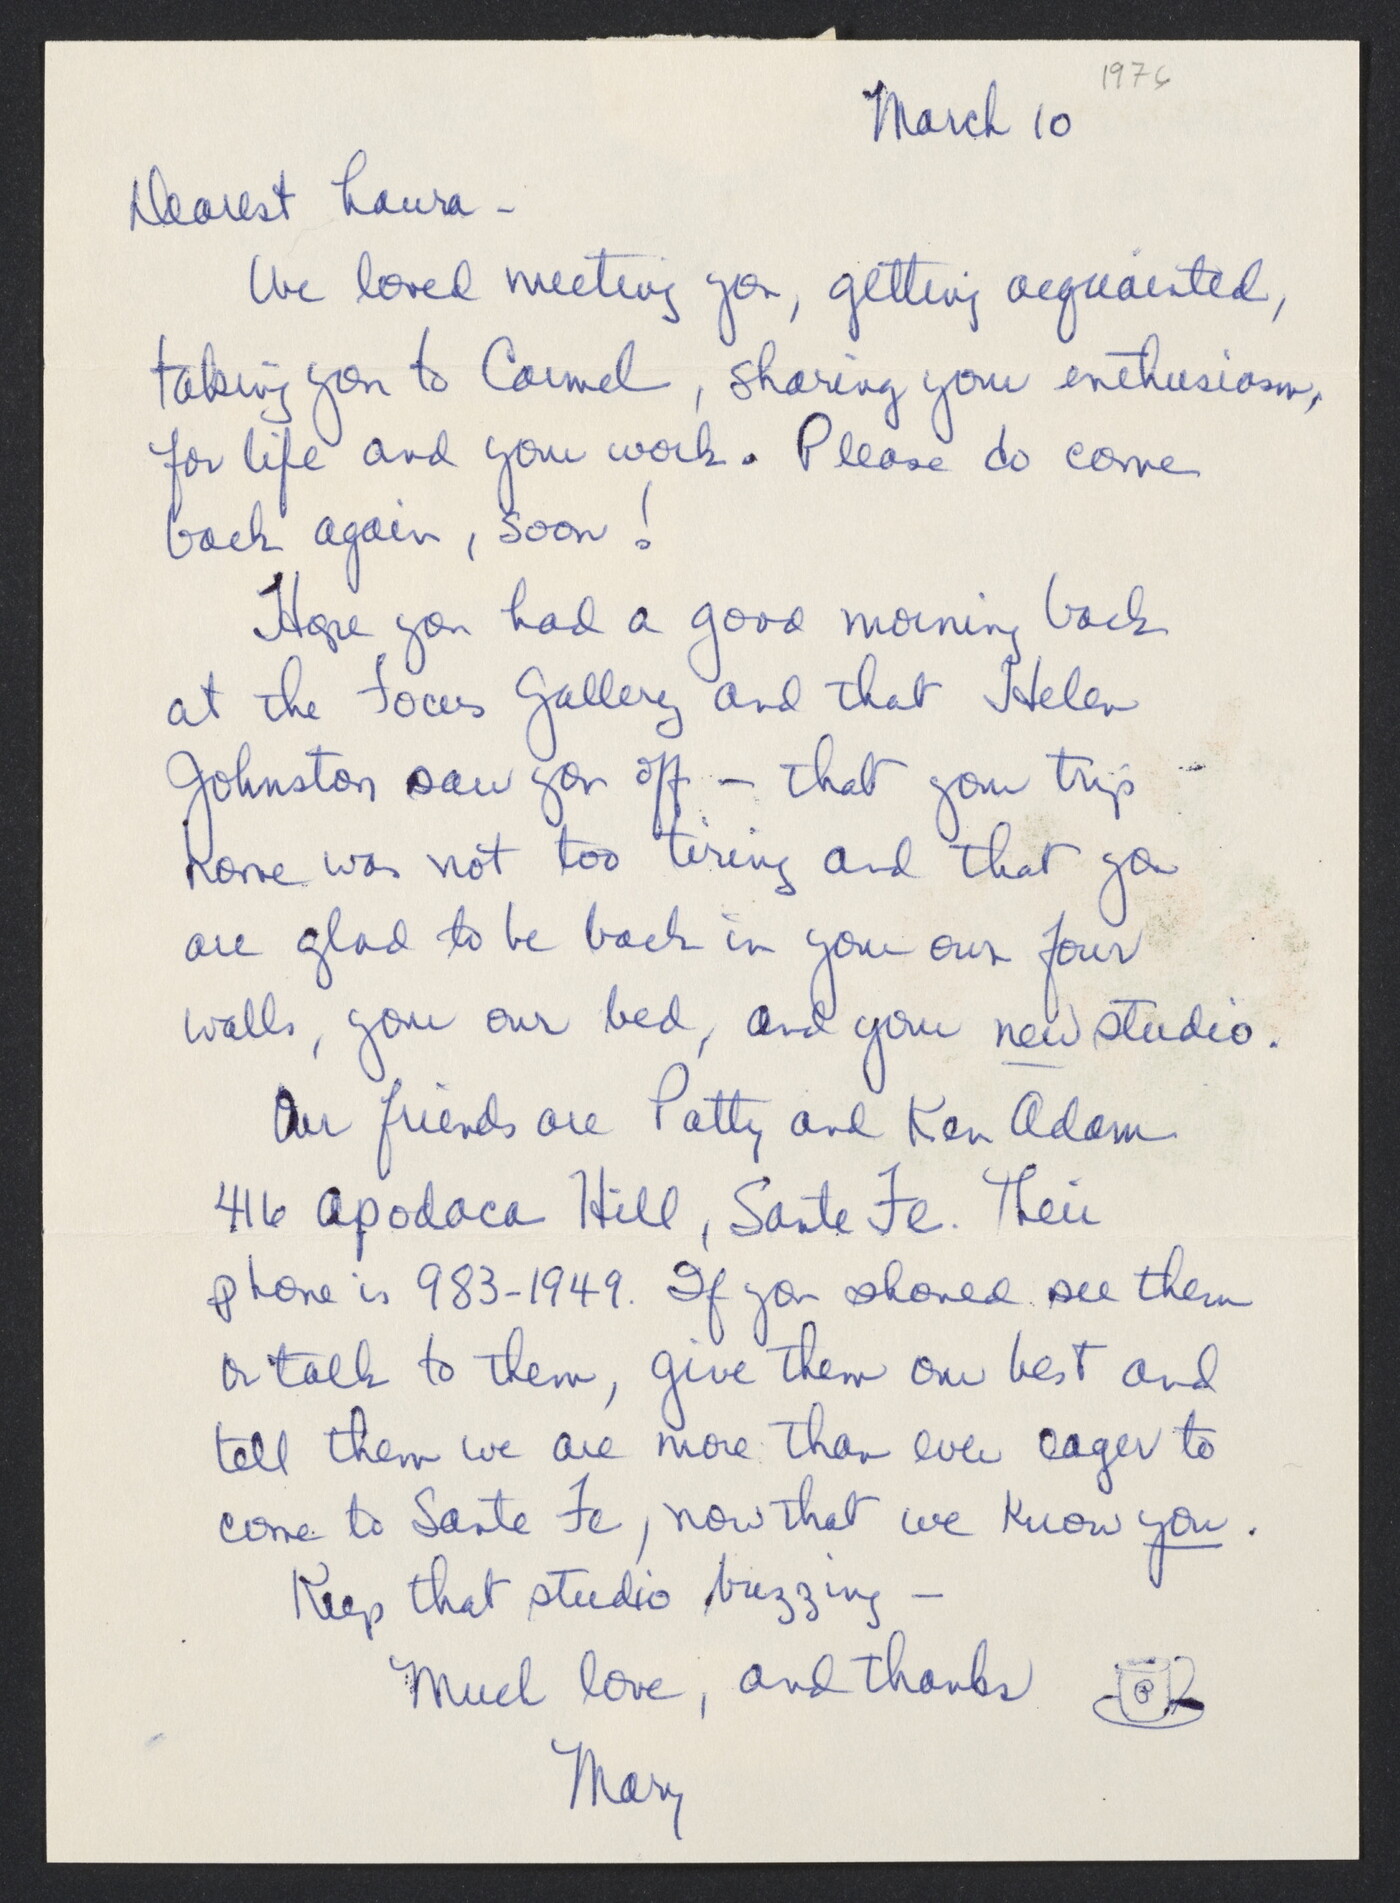 1976
March 10
Dearest Laura -
We loved meeting you, getting acquainted,
taking you to Carmel, sharing your enthusiasm,
for life and your work. Please do come
back again, soon!
Hope you had a good morning back
at the Focus Gallery and that Helen
Johnston saw you off - that your trip
home was not too tiring and that you
are glad to be back in your own four
walls, your own bed, and your new studio.
Our friends are Patty and Ken Adam
416 Apodaca Hill, Sante Fe. Their
phone is 983-1949. If you should see them
or talk to them, give them our best and
tell them we are more than ever eager to
come to Sante Fe, now that we know you.
Keep that studio buzzing -
Much love, and thanks
Mary